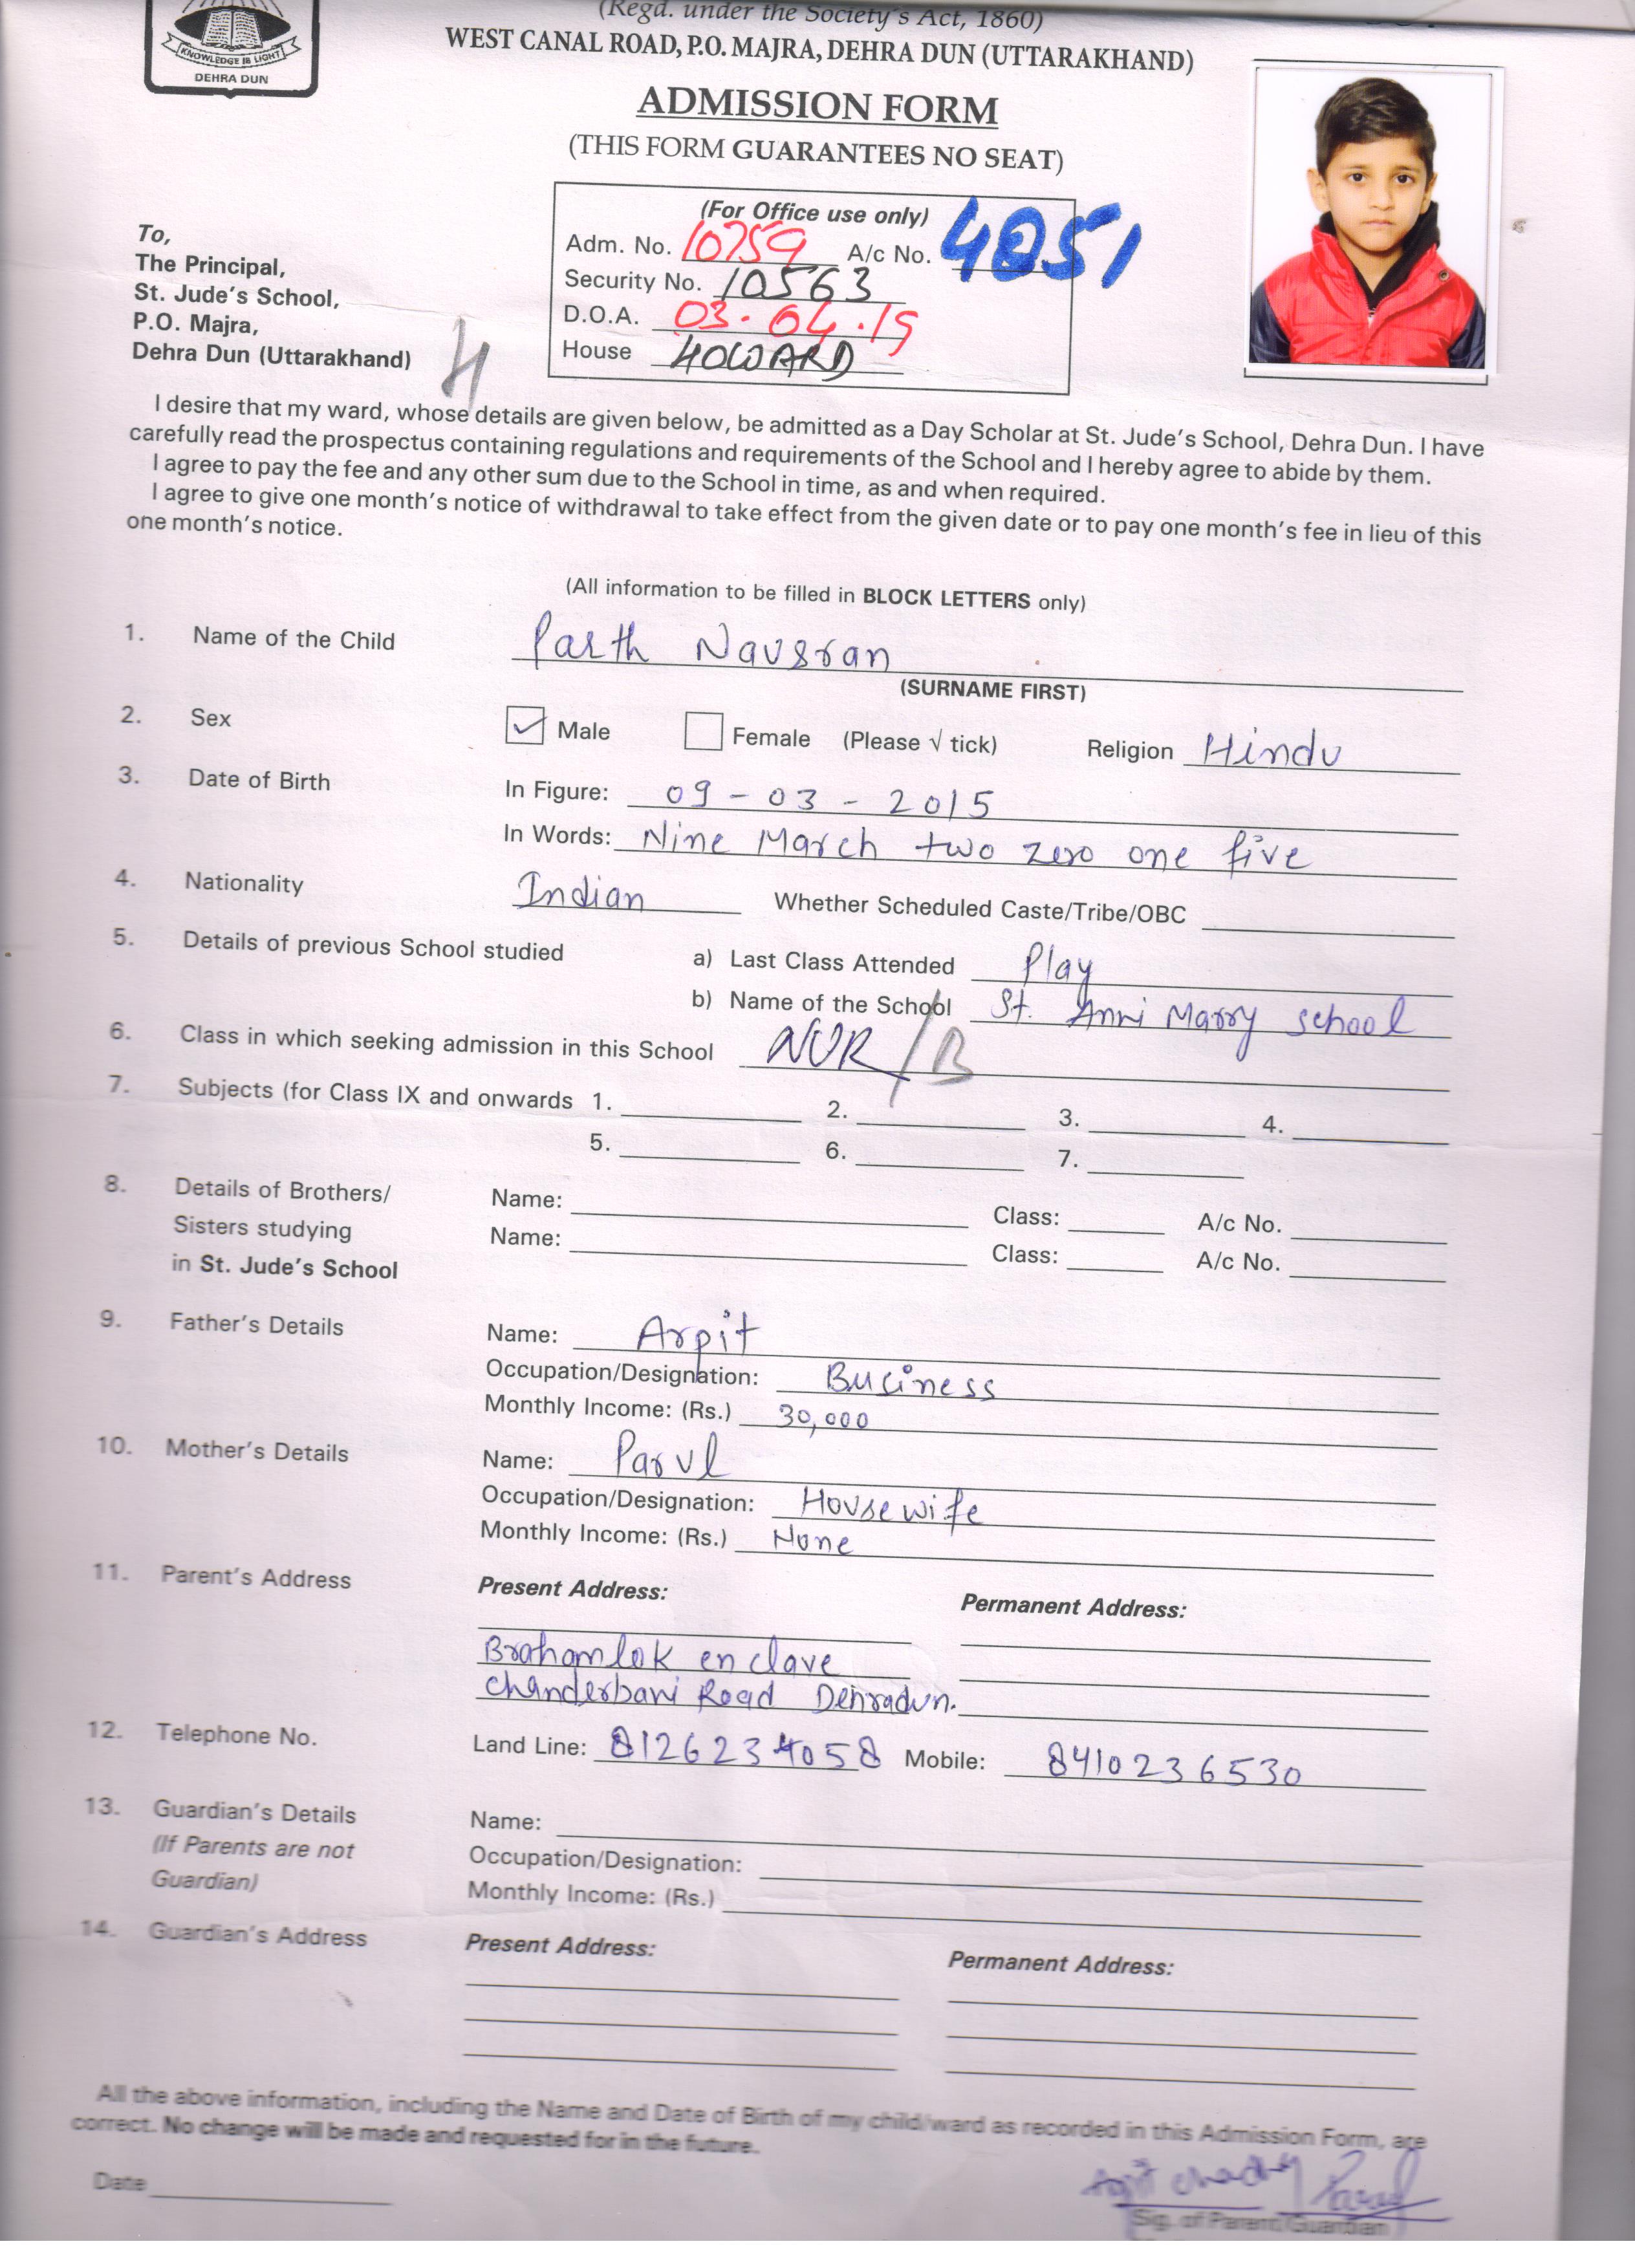 KNOWLEDGE IS LIGHT
DEHRA DUN
(Regd. under the Society's Act, 1860)
WEST CANAL ROAD, P.O. MAJRA, DEHRA DUN (UTTARAKHAND)
ADMISSION FORM
(THIS FORM GUARANTEES NO SEAT)
(For Office use only)
Adm. No. 10759 A/c No. 4051
Security No. 10563
D.O.A. 03.04.19
House HOWARD
To,
The Principal,
St. Jude's School,
P.O. Majra,
Dehra Dun (Uttarakhand)
H
I desire that my ward, whose details are given below, be admitted as a Day Scholar at St. Jude's School, Dehra Dun. I have
carefully read the prospectus containing regulations and requirements of the School and I hereby agree to abide by them.
I agree to pay the fee and any other sum due to the School in time, as and when required.
I agree to give one month's notice of withdrawal to take effect from the given date or to pay one month's fee in lieu of this
one month's notice.
(All information to be filled in BLOCK LETTERS only)
1. Name of the Child Parth Navsran
(SURNAME FIRST)
2. Sex Male Female (Please √ tick) Religion Hindu
3. Date of Birth In Figure: 09-03-2015
In Words: Nine March two zero one five
4. Nationality Indian Whether Scheduled Caste/Tribe/OBC
5. Details of previous School studied a) Last Class Attended Play
b) Name of the School St. Anni Marry school
6. Class in which seeking admission in this School NUR/B
7. Subjects (for Class IX and onwards 1. 2. 3. 4.
5. 6. 7.
8. Details of Brothers/ Name: Class: A/c No.
Sisters studying Name: Class: A/c No.
in St. Jude's School
9. Father's Details Name: Arpit
Occupation/Designation: Business
Monthly Income: (Rs.) 30,000
10. Mother's Details Name: Parul
Occupation/Designation: Housewife
Monthly Income: (Rs.) None
11. Parent's Address Present Address: Permanent Address:
Brahamlok enclave
Chanderbani Road Dehradun.
12. Telephone No. Land Line: 8126234058 Mobile: 8410236530
13. Guardian's Details Name:
(If Parents are not Occupation/Designation:
Guardian) Monthly Income: (Rs.)
14. Guardian's Address Present Address: Permanent Address:
All the above information, including the Name and Date of Birth of my child/ward as recorded in this Admission Form, are
correct. No change will be made and requested for in the future.
Date
Parul
Sig. of Parent/Guardian